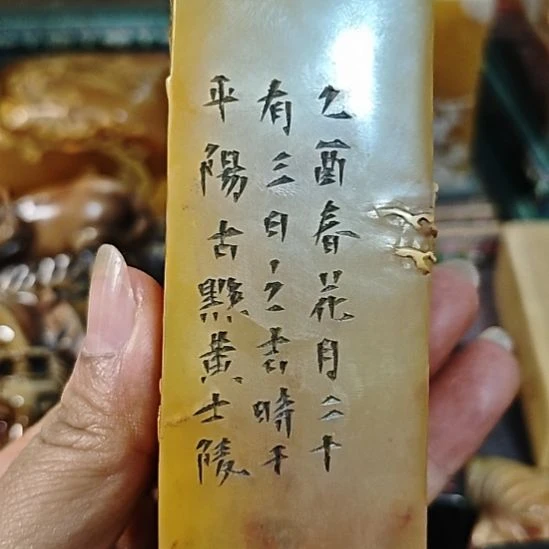 乙酉春花月二十
有三日乙書時于
平陽古黟黄士陵